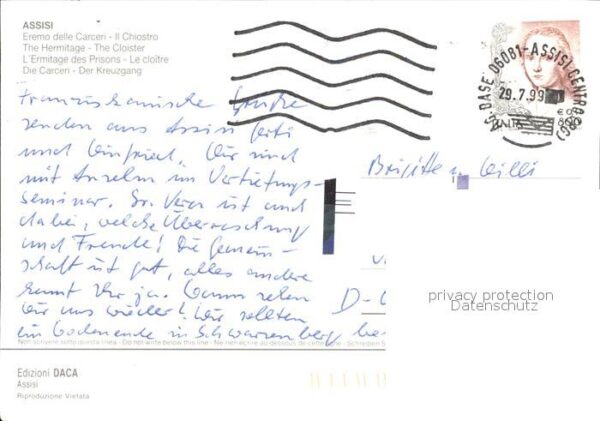 ASSISI
Eremo delle Carceri - Il Chiostro
The Hermitage - The Cloister
L'Ermitage des Prisons - Le cloître
Die Carceri - Der Kreuzgang
AG. BASE 06081-ASSISI CENTRO (PG)
29.7.99
Franziskanische Grüße
senden aus Assisi Gerti
und Winfried. Wir sind
mit Anselm im Vertiefungs-
seminar. Sr. Vera ist auch
dabei, welche Überraschung
und Freude! Die Gemein-
schaft ist gut, alles andere
kennt Ihr ja. Wann sehen
wir uns wieder? Wir sollten
ein Wochenende in Schwarzenberg be-
Brigitte u. Willi
D-
privacy protection
Datenschutz
Non scrivere sotto questa linea - Do not write below this line - Ne rien écrire au dessous de cette ligne - Schreiben S
Edizioni DACA
Assisi
Riproduzione Vietata